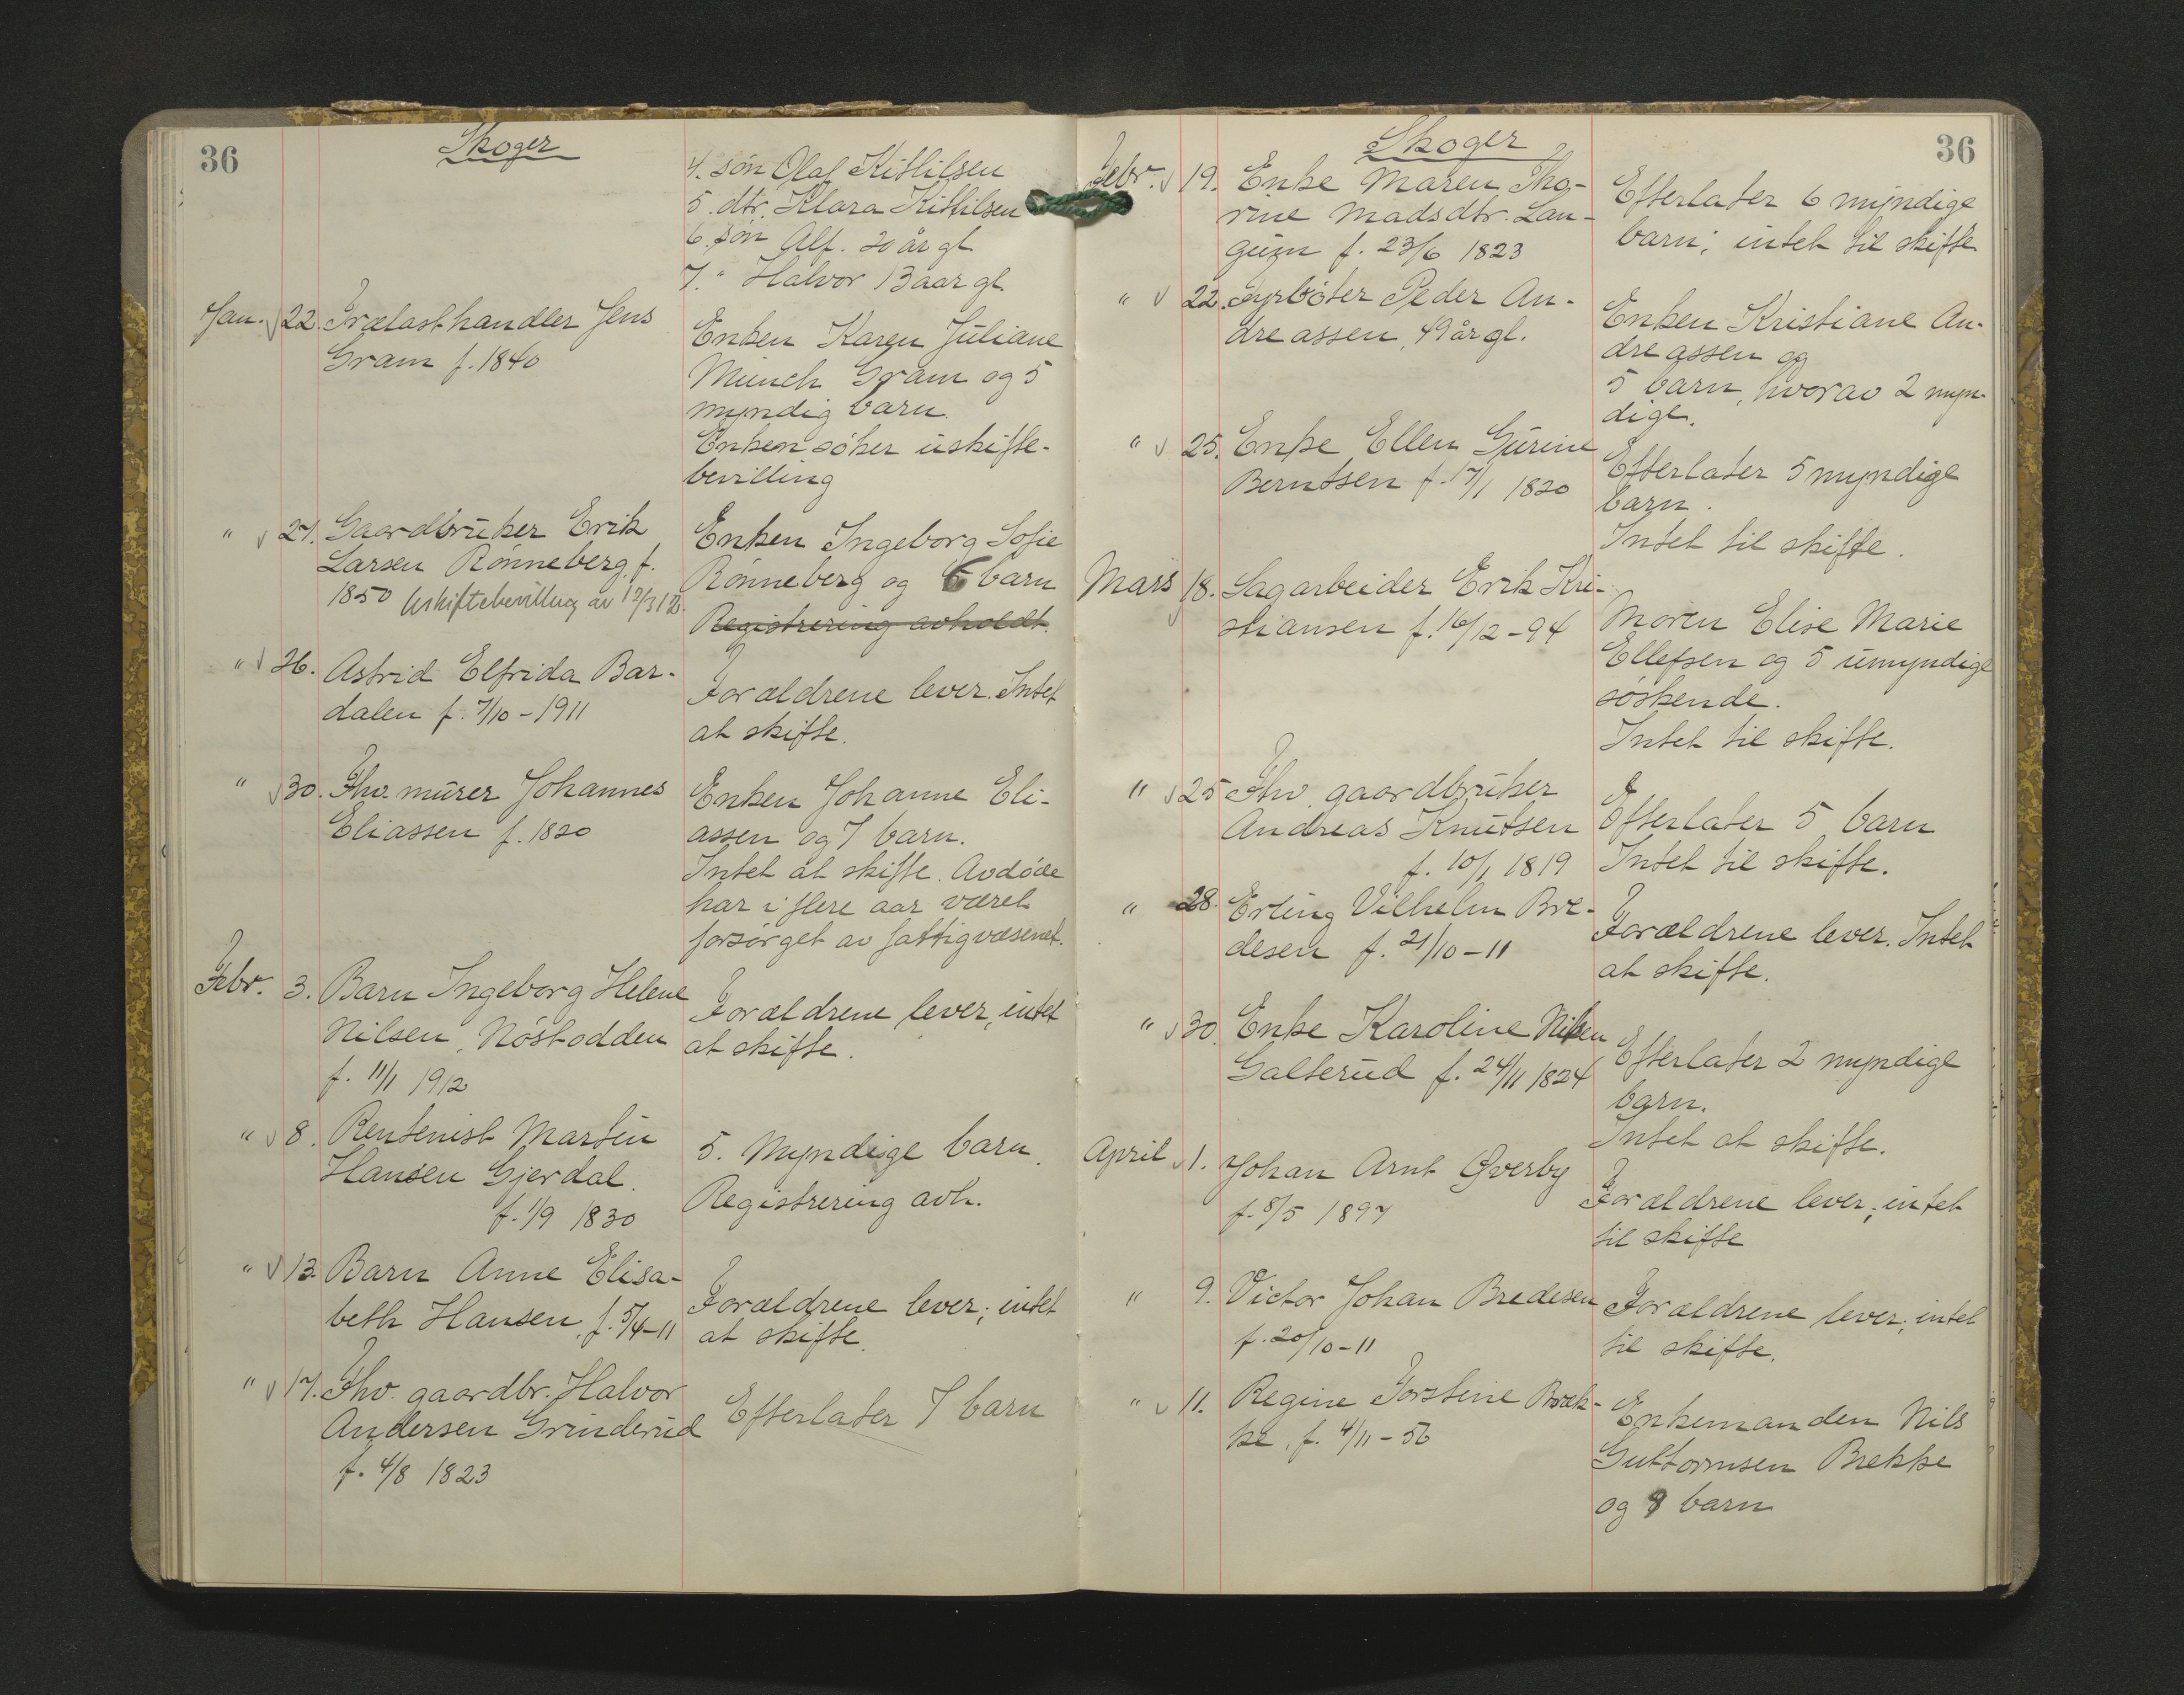 36
Skoger
4. søn Olaf Kittilsen
5. dtr. Klara Kittilsen
6. søn Alf. 20 år gl
7. " Halvor 13 aar gl.
Jan. 22. Trælasthandler Jens
Gram f. 1840
Enken Karen Juliane
Münch Gram og 5
myndig barn.
Enken søker uskifte-
bevilling
" 27. Gaardbruker Erik
Larsen Rønneberg, f.
1850 Uskiftebevilling av 12/3 12.
Enken Ingeborg Sofie
Rønneberg og 6 barn
Registrering avholdt.
" 26. Astrid Elfrida Bar-
dalen f. 7/10 - 1911
Forældrene lever. Intet
at skifte.
" 30. Fhv. murer Johannes
Eliassen f. 1820
Enken Johanne Eli-
assen og 7 barn.
Intet at skifte. Avdøde
har i flere aar været
forsørget av fattigvæsenet.
Febr. 3. Barn Ingeborg Helene
Nilsen, Nøstodden
f. 11/1 1912
Forældrene lever, intet
at skifte.
" 8. Rentenist Martin
Hansen Gjerdal.
f. 1/9 1830
5. Myndige barn.
Registrering avh.
" 13. Barn Anne Elisa-
beth Hansen, f. 5/4-11
Forældrene lever; intet
at skifte.
" 17. Fhv. gaardbr. Halvor
Andersen Grinderud
f. 4/8 1823
Efterlater 7 barn
36
Skoger
Febr. 19. Enke Maren Tho-
rine Madsdtr. Lan-
f. 23/6 1823
Efterlater 6 myndige
barn; intet til skifte
" 22. Fyrbøter Peder An-
dreassen, 49 år gl.
Enken Kristiane An-
dreassen og
5 barn, hvorav 2 myn-
dige.
" 25. Enke Ellen Gurine
Berntsen f. 17/1 1820
Efterlater 5 myndige
barn.
Intet til skifte.
Mars 18. Sagarbeider Erik Kri-
stiansen f. 16/12-94
Moren Elise Marie
Ellefsen og 5 umyndige
søskende.
Intet til skifte.
" 25 Fhv. gaardbruker
Andreas Knutsen
f. 10/1 1819
Efterlater 5 barn
Intet til skifte.
" 28. Erling Vilhelm Bre-
desen f. 21/10-11
Forældrene lever. Intet
at skifte.
" 30. Enke Karoline Nilsen
Galterud f. 24/11 1824
Efterlater 2 myndige
barn.
Intet at skifte.
April 1. Johan Arnt Øverby
f. 8/5 1897
Forældrene lever; intet
til skifte
" 9. Victor Johan Bredesen
f. 20/10-11
Forældrene lever; intet
til skifte.
" 11. Regine Torstine Bræk-
ke, f. 4/11-56
Enkemanden Nils
Guttormsen Brekke
og 8 barn